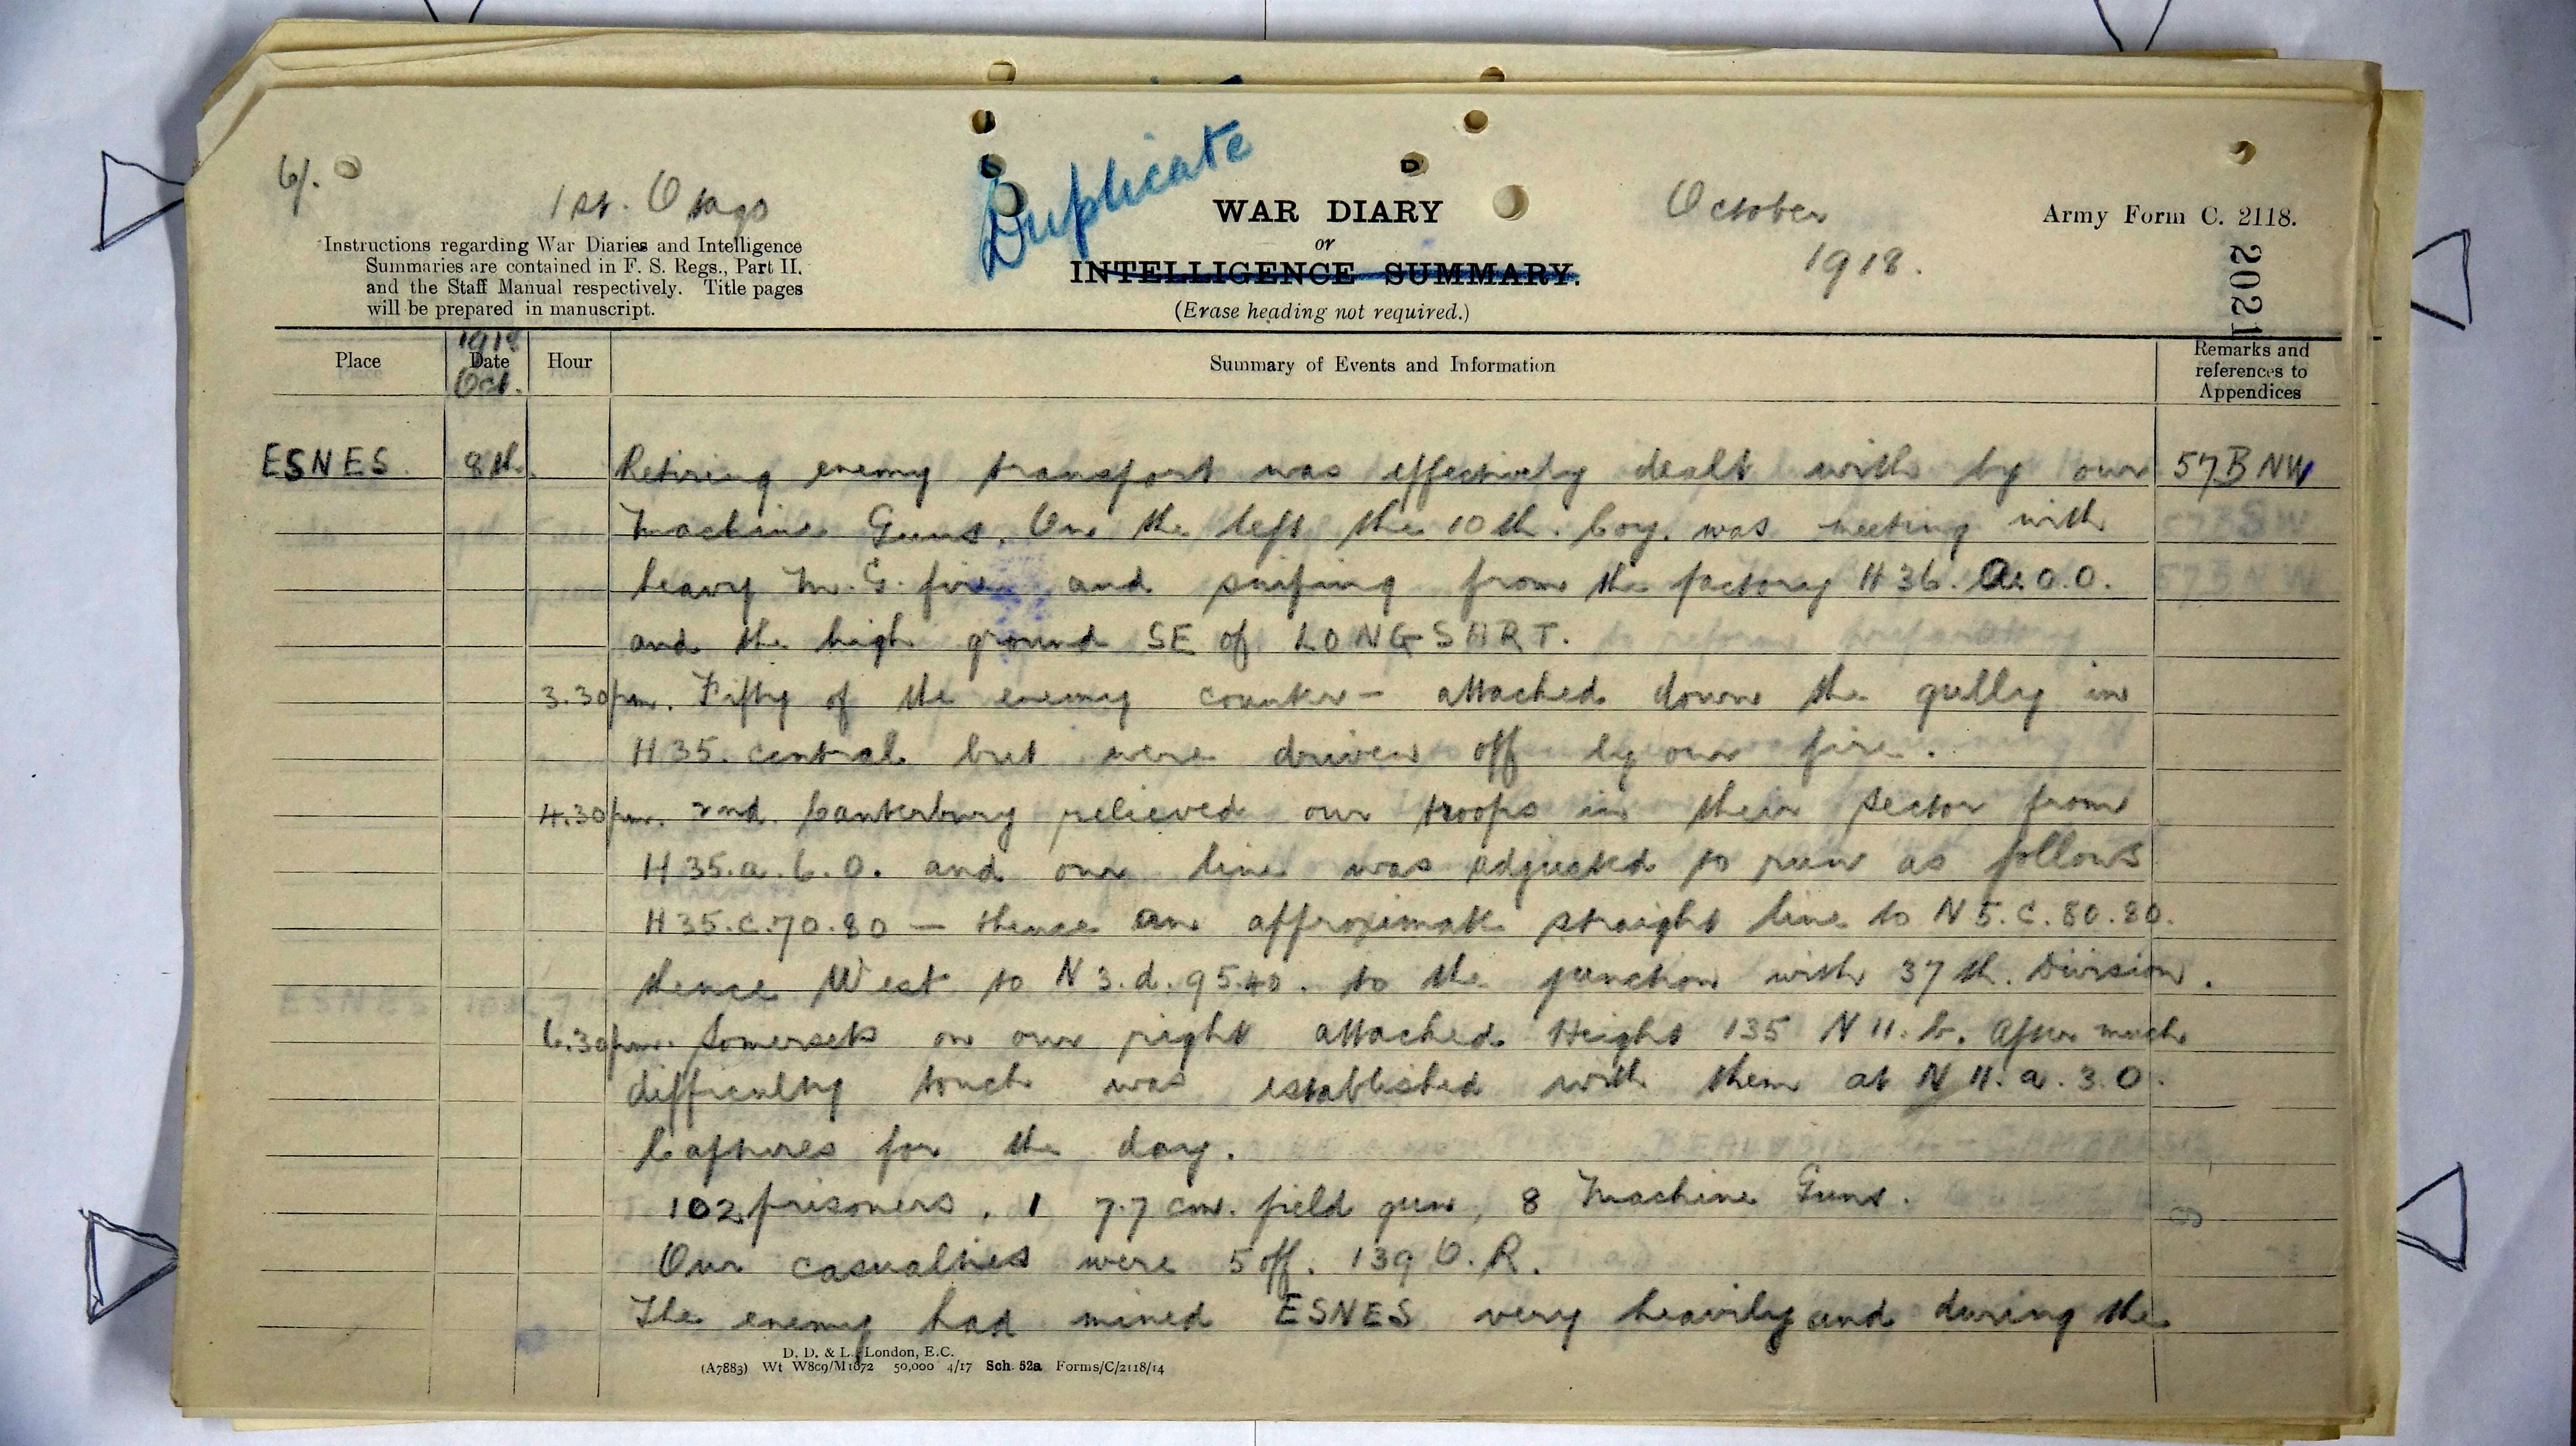 6/.
1st. Otago
Duplicate
WAR DIARY
or
INTELLIGENCE SUMMARY.
(Erase heading not required.)
October
1918.
Army Form C. 2118.
2021
Instructions regarding War Diaries and Intelligence
Summaries are contained in F. S. Regs., Part II.
and the Staff Manual respectively. Title pages
will be prepared in manuscript.
Place 1918 Date Oct. Hour Summary of Events and Information Remarks and references to Appendices
ESNES. 8th. Retiring enemy transport was effectively dealt with by our 57B NW
Machine Guns. On the left the 10th. Coy. was meeting with
heavy M.G. fire and sniping from the factory H 36. a.0.0.
and the high ground SE of LONGSART.
3.30pm. Fifty of the enemy counter- attacked down the gully in
H 35. central but were driven off by our fire.
4.30pm. 2nd. Canterbury relieved our troops in their sector from
H 35.a.6.0. and our line was adjusted to run as follows
H 35.c.70.80 — thence an approximate straight line to N 5. c. 80.80.
thence West to N 3. d. 95.40. to the junction with 37th. Division.
6.30pm. Somersets on our right attacked Height 135 N 11. b. After much
difficulty touch was established with them at N 11. a. 3.0.
Captures for the day.
102 prisoners, 1 7.7 cm. field gun, 8 Machine Guns.
Our casualties were 5 off. 139 O.R.
The enemy had mined ESNES very heavily and during the
D. D. & L., London, E.C.
(A7883) Wt W809/M1672 50,000 4/17 Sch. 52a Forms/C/2118/14